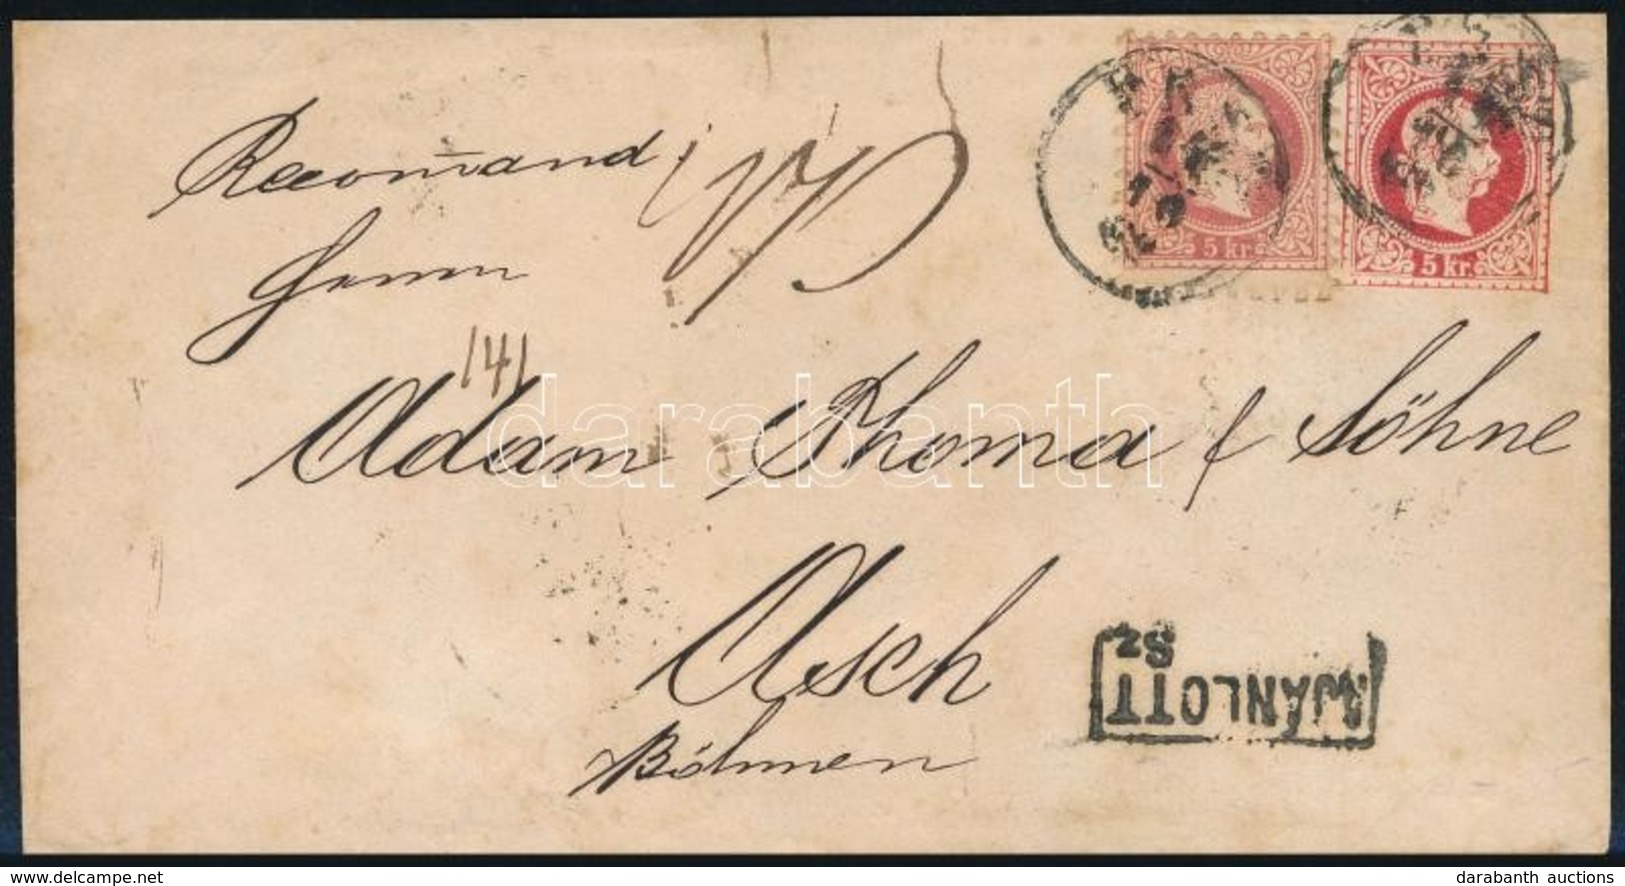 Recomand
Herrn
141
Adam Thoma & Söhne
Asch
Böhmen
5 kr.
5 kr.
AJÁNLOTT
Sz
darabanth
© Delcampe.net
darabanth auctions